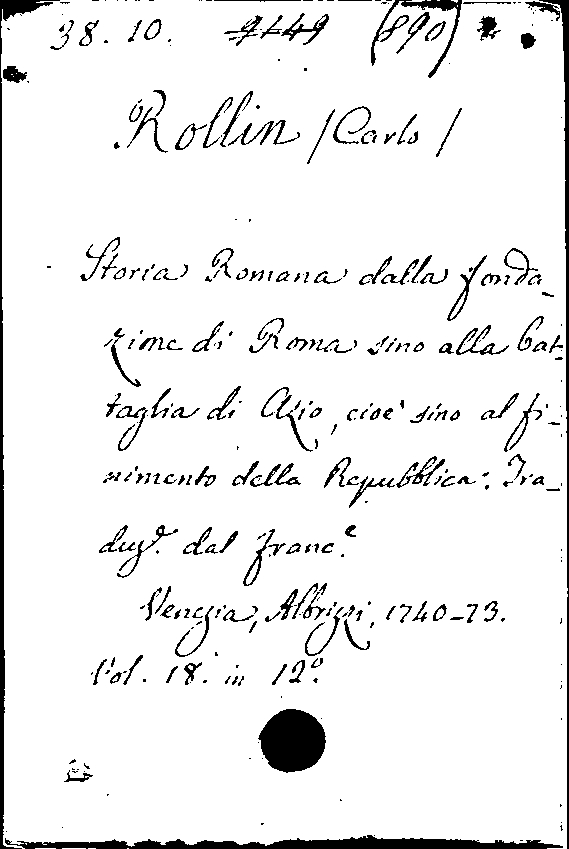 38. 10. 9149 (890)
Rollin /Carlo/
Storia Romana dalla fonda-
zione di Roma sino alla bat-
taglia di Azio, cioe' sino al fi-
nimento della Repubblica. Tra-
duz.e dal Franc.e
Venezia, Albrizzi, 1740-73.
Vol. 18. in 12.o